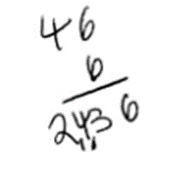 46
6
2436